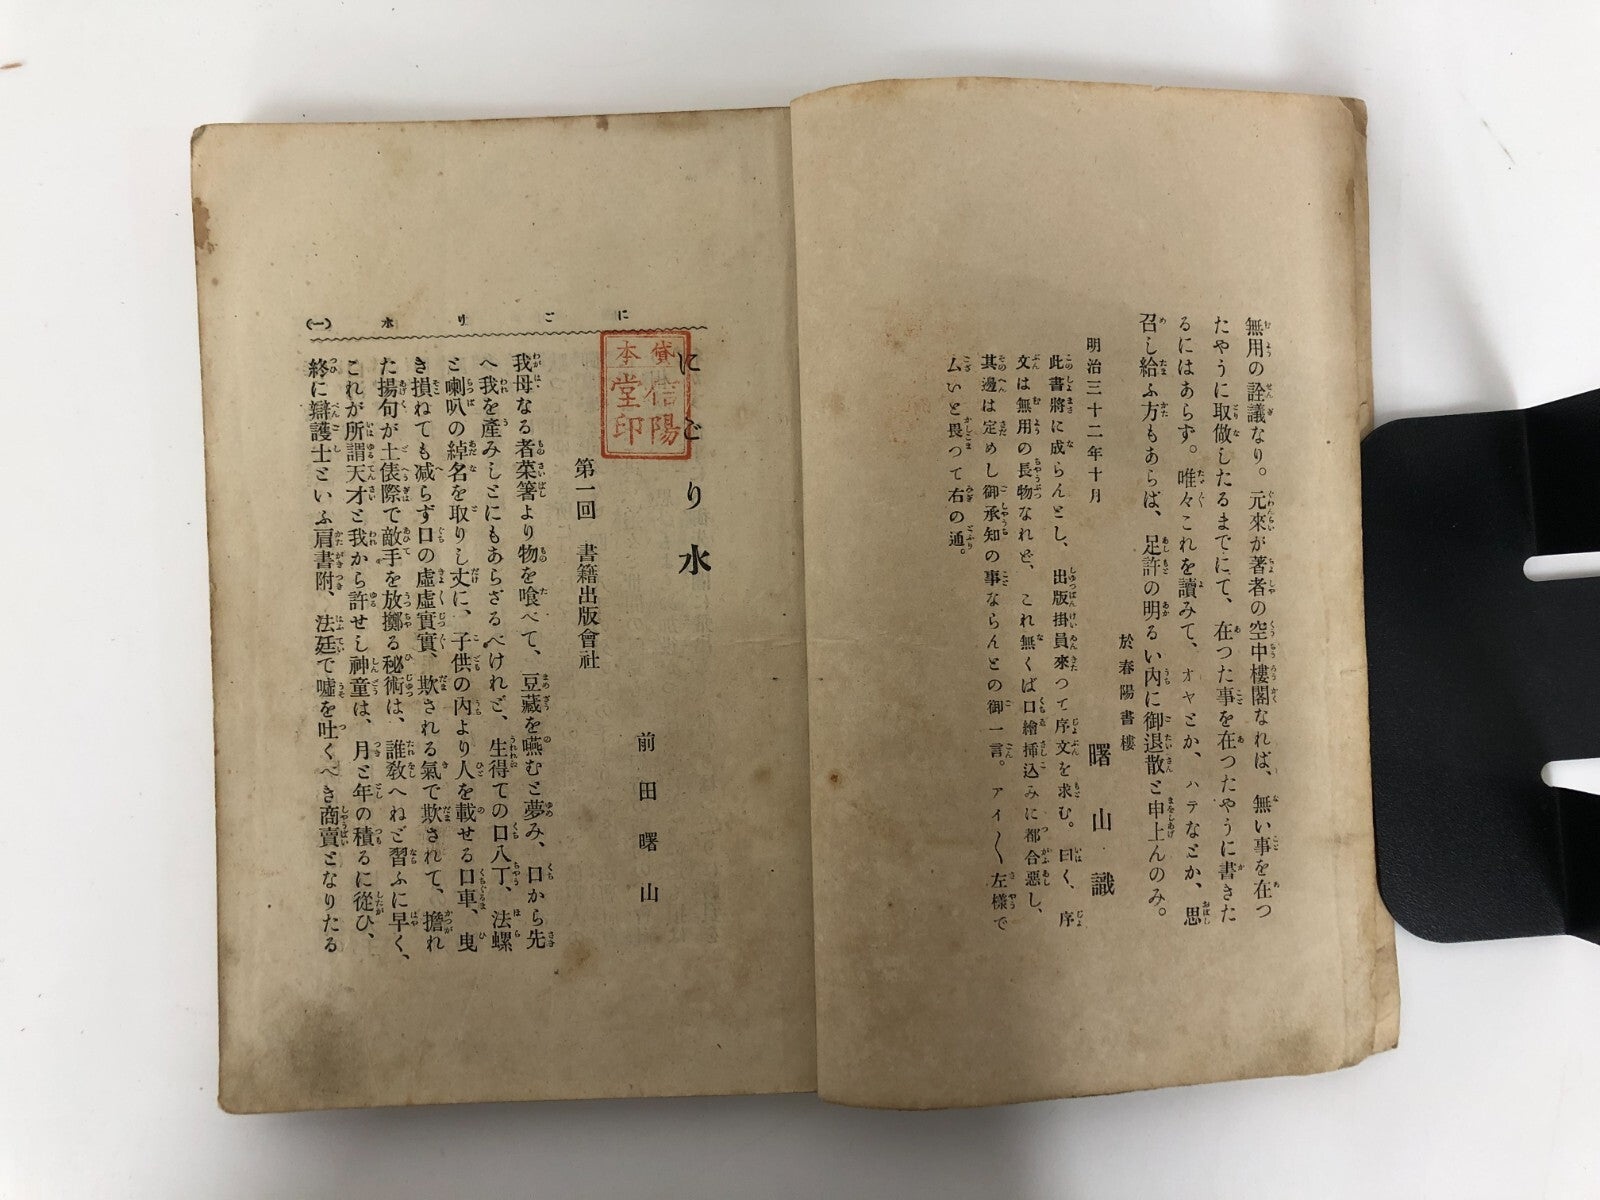 無用の詮議なり。元來が著者の空中樓閣なれば、無い事を在つ
たやうに取做したるまでにて、在つた事を在つたやうに書きた
るにはあらず。唯々これを讀みて、オヤとか、ハテなとか、思
召し給ふ方もあらば、足許の明るい內に御退散と申上んのみ。
於春陽書樓
明治三十二年十月
曙山識
此書將に成らんとし、出版掛員來つて序文を求む。曰く、序
文は無用の長物なれど、これ無くば口繪挿込みに都合惡し、
其邊は定めし御承知の事ならんとの御一言。アイ〱左樣で
厶いと畏つて右の通。
にごり水
(一)
にごり水
貸本
信陽堂印
前田曙山
第一回 書籍出版會社
我母なる者菜箸より物を喰べて、豆藏を嚥むと夢み、口から先
へ我を產みしとにもあらざるべけれど、生得ての口八丁、法螺
と喇叭の綽名を取りし丈に、子供の內より人を載せる口車、曳
き損ねても減らず口の虛虛實實、欺される氣で欺されて、擔れ
た揚句が土俵際で敵手を放擲る秘術は、誰敎へねど習ふに早く、
これが所謂天才と我から許せし神童は、月と年の積るに從ひ、
終に辯護士といふ肩書附、法廷で噓を吐くべき商賣となりたる